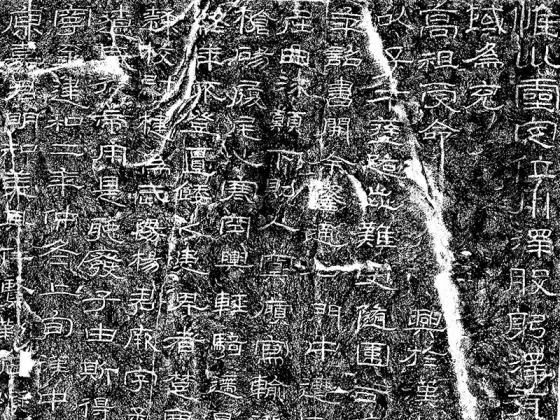 惟巛靈定位川澤股躬澤有
域為充
高祖受命興於漢
以子午塗路歰難更隨圍谷
年詔書開余鑿通石門中遭
屈曲流顛下則入冥傾寫輸
槍碭履尾心寒空輿輕騎遰
終年不登匱餧之患卑者楚
隸校尉楗為武陽楊君厥字孟
遼咸從帝用是聽廢子由斯得
寧至建和二年仲冬上旬漢中
原嘉君明知美其仁賢勒